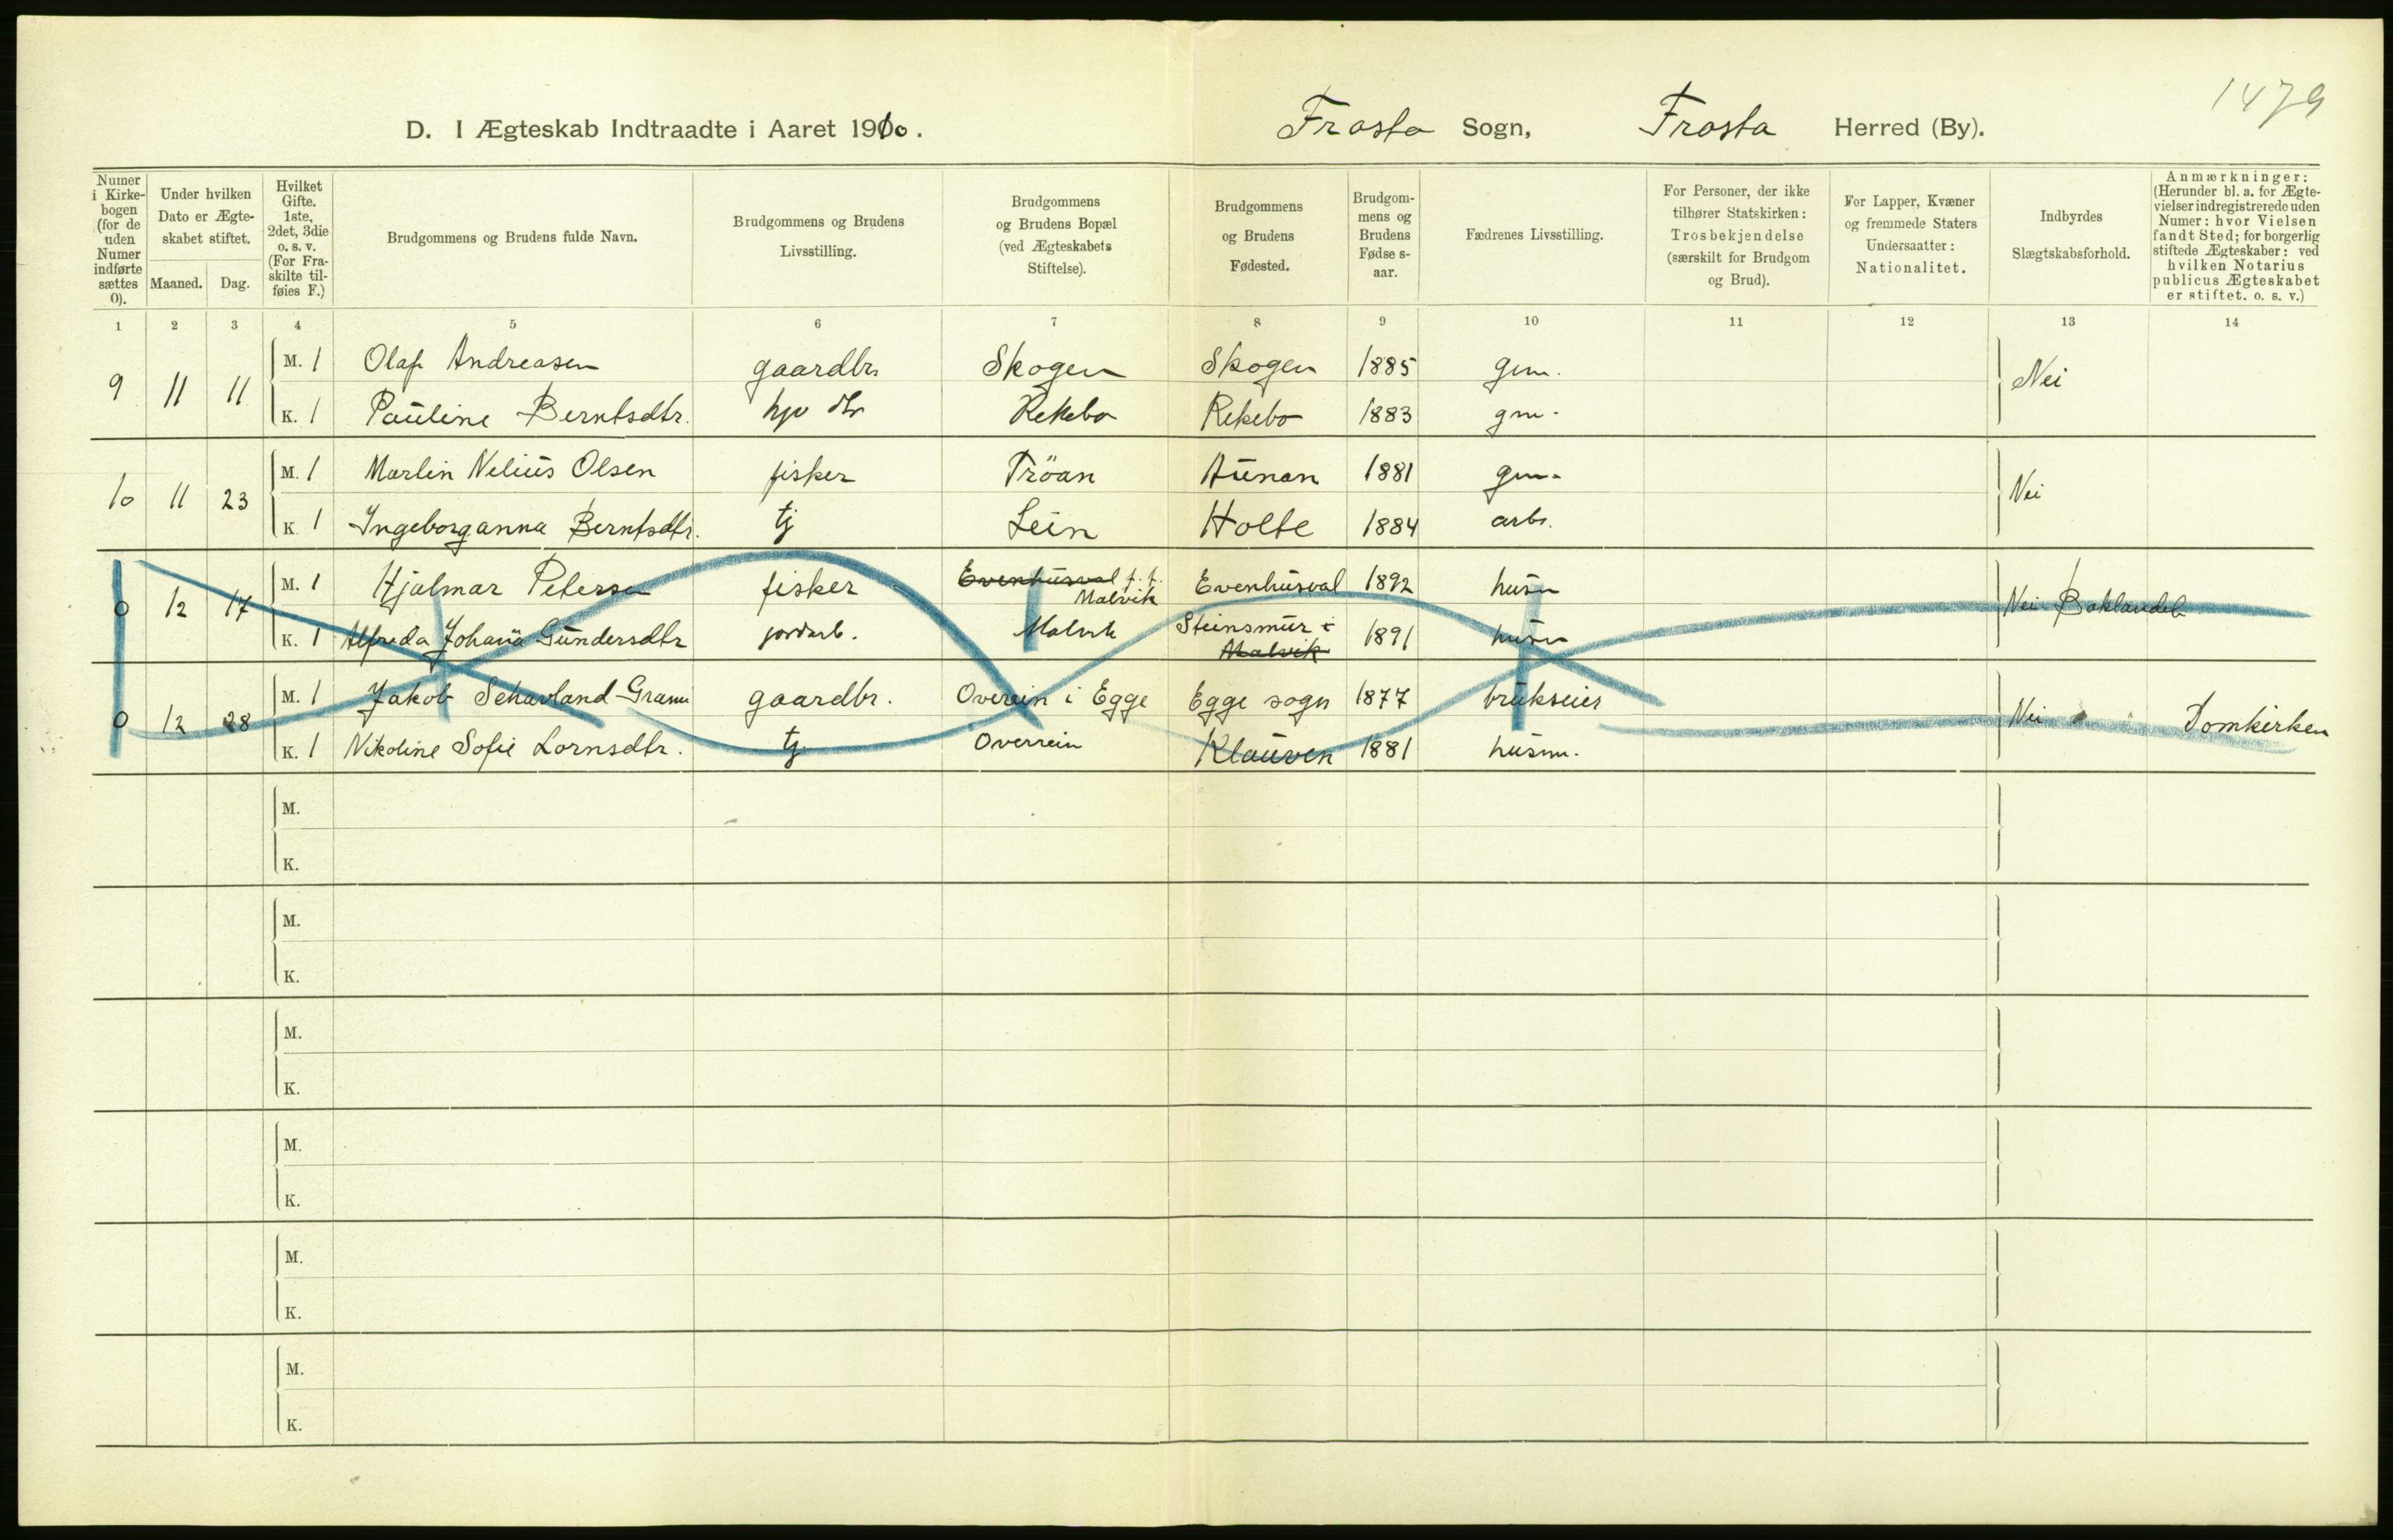 1479
D. I Ægteskab Indtraadte i Aaret 1910.
Frosta Sogn, Frosta Herred (By).
Numer i Kirkebogen (for de uden Numer indførte sættes 0).
Under hvilken Dato er Ægteskabet stiftet.
Maaned. Dag.
Hvilket Gifte. 1ste, 2det, 3die o. s. v. (For Fraskilte tilføies F.)
Brudgommens og Brudens fulde Navn.
Brudgommens og Brudens Livsstilling.
Brudgommens og Brudens Bopæl (ved Ægteskabets Stiftelse).
Brudgommens og Brudens Fødested.
Brudgommens og Brudens Fødselsaar.
Fædrenes Livsstilling.
For Personer, der ikke tilhører Statskirken: Trosbekjendelse (særskilt for Brudgom og Brud).
For Lapper, Kvæner og fremmede Staters Undersaatter: Nationalitet.
Indbyrdes Slægtskabsforhold.
Anmærkninger: (Herunder bl. a. for Ægtevielser indregistrerede uden Numer: hvor Vielsen fandt Sted; for borgerlig stiftede Ægteskaber: ved hvilken Notarius publicus Ægteskabet er stiftet. o. s. v.)
1 2 3 4 5 6 7 8 9 10 11 12 13 14
9 11 11 M. 1 Olaf Andreasen gaardbr. Skogen Skogen 1885 gm. Nei
K. 1 Pauline Berntsdtr. hjv dtr Rekebo Rekebo 1883 gm.
10 11 23 M. 1 Martin Nelius Olsen fisker Tröan Aunan 1881 gm. Nei
K. 1 Ingeborganna Berntsdtr. tj Lein Holte 1884 arb.
0 12 17 M. 1 Hjalmar Petersen fisker Evenhusval f. t. Malvik Evenhusval 1892 husm Nei Baklandet
K. 1 Alfreda Johana Gundersdtr jordarb. Malvik Steinsmur i Malvik 1891 husm
0 12 28 M. 1 Jakob Schavland Gram gaardbr. Overein i Egge Egge sogn 1877 brukseier Nei Domkirken
K. 1 Nikoline Sofie Lornsdtr. tj Overrein Klauven 1881 husm.
M.
K.
M.
K.
M.
K.
M.
K.
M.
K.
M.
K.